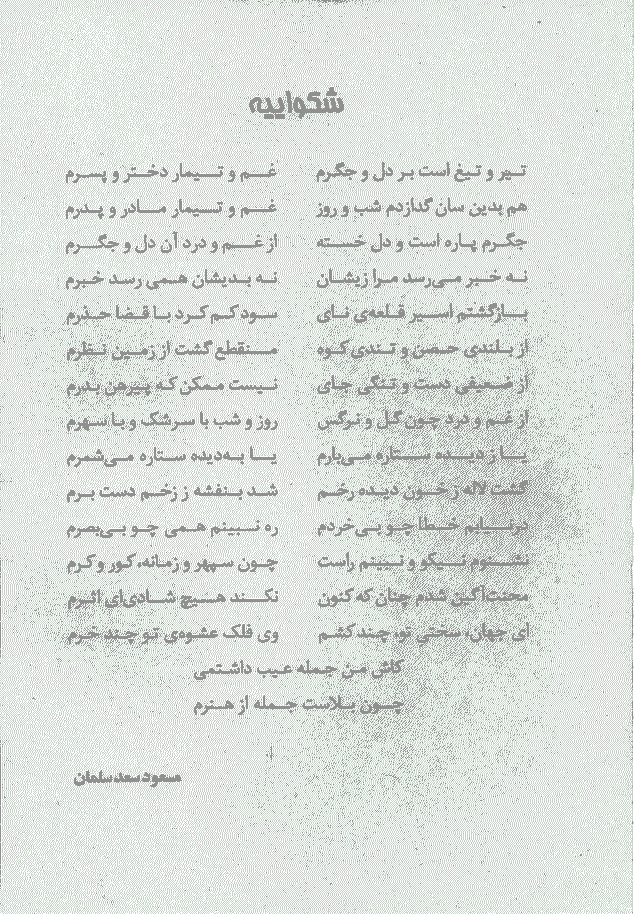 شکواییه
تیر و تیغ است بر دل و جگرم غم و تیمار دختر و پسرم
هم بدین سان گدازدم شب و روز غم و تیمار مادر و پدرم
جگرم پاره است و دل خسته از غم و درد آن دل و جگرم
نه خبر می‌رسد مرا زیشان نه بدیشان همی رسد خبرم
بازگشتم اسیر قلعه‌ی نای سود کم کرد با قضا حذرم
از بلندی حصن و تندی کوه منقطع گشت از زمین نظرم
از ضعیفی دست و تنگی جای نیست ممکن که پیرهن بدرم
از غم و درد چون گل و نرگس روز و شب با سرشک و با سهرم
یا ز دیده ستاره می‌بارم یا به‌دیده ستاره می‌شمرم
گشت لاله ز خون دیده رخم شد بنفشه ز زخم دست برم
درنیابم خطا چو بی‌خردم ره نبینم همی چو بی‌بصرم
نشنوم نیکو و نبینم راست چون سپهر و زمانه، کور و کرم
محنت‌آگین شدم چنان که کنون نکند هیچ شادی‌ای اثرم
ای جهان، سختی تو، چند کشم وی فلک عشوه‌ی تو چند خرم
کاش من جمله عیب داشتمی
چون بلاست جمله از هنرم
مسعود سعد سلمان